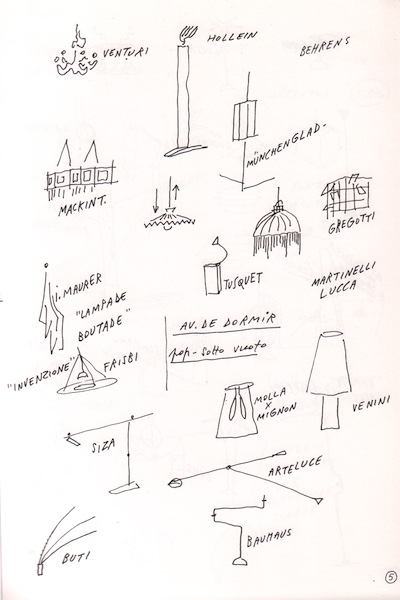 VENTURI
HOLLEIN
BEHRENS
MÜNCHENGLAD-
MACKINT.
GREGOTTI
TUSQUET
I. MAURER
"LAMPADE
BOUTADE"
MARTINELLI
LUCCA
AV. DE DORMIR
pop-sotto vuoto
"INVENZIONE"
FRISBI
MOLLA
x
MIGNON
VENINI
SIZA
ARTELUCE
BAUHAUS
BUTI
5